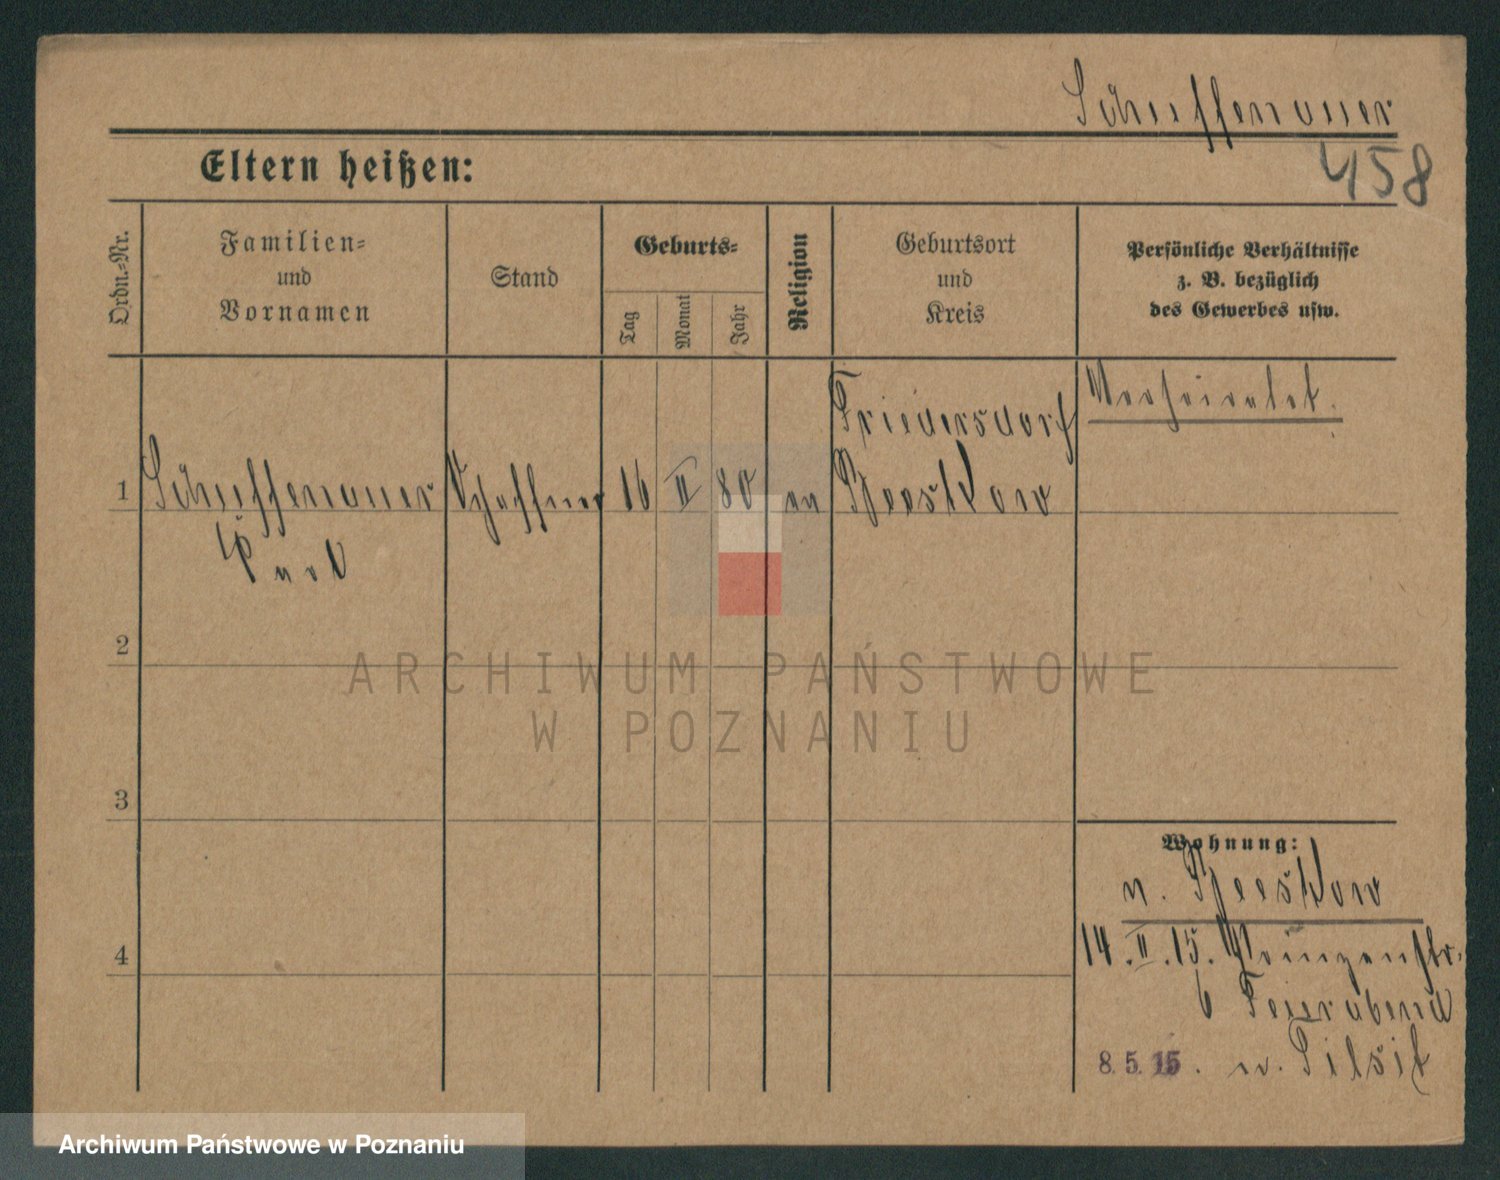 Schuffenauer
458
Eltern heißen:
Ordn.-Nr.
Familien-
und
Vornamen
Stand
Geburts-
Tag
Monat
Jahr
Religion
Geburtsort
und
Kreis
Persönliche Verhältnisse
z. B. bezüglich
des Gewerbes usw.
Verheiratet.
Friedersdorf
1 Schuffenauer Schaffner 16 II 80 ev Beeskow
Paul
2
3
4
Wohnung:
n. Beeskow
14.II.15. Prinzenstr.
6 Feierabend
8.5.15. n. Tilsit
ARCHIWUM PAŃSTWOWE
W POZNANIU
Archiwum Państwowe w Poznaniu